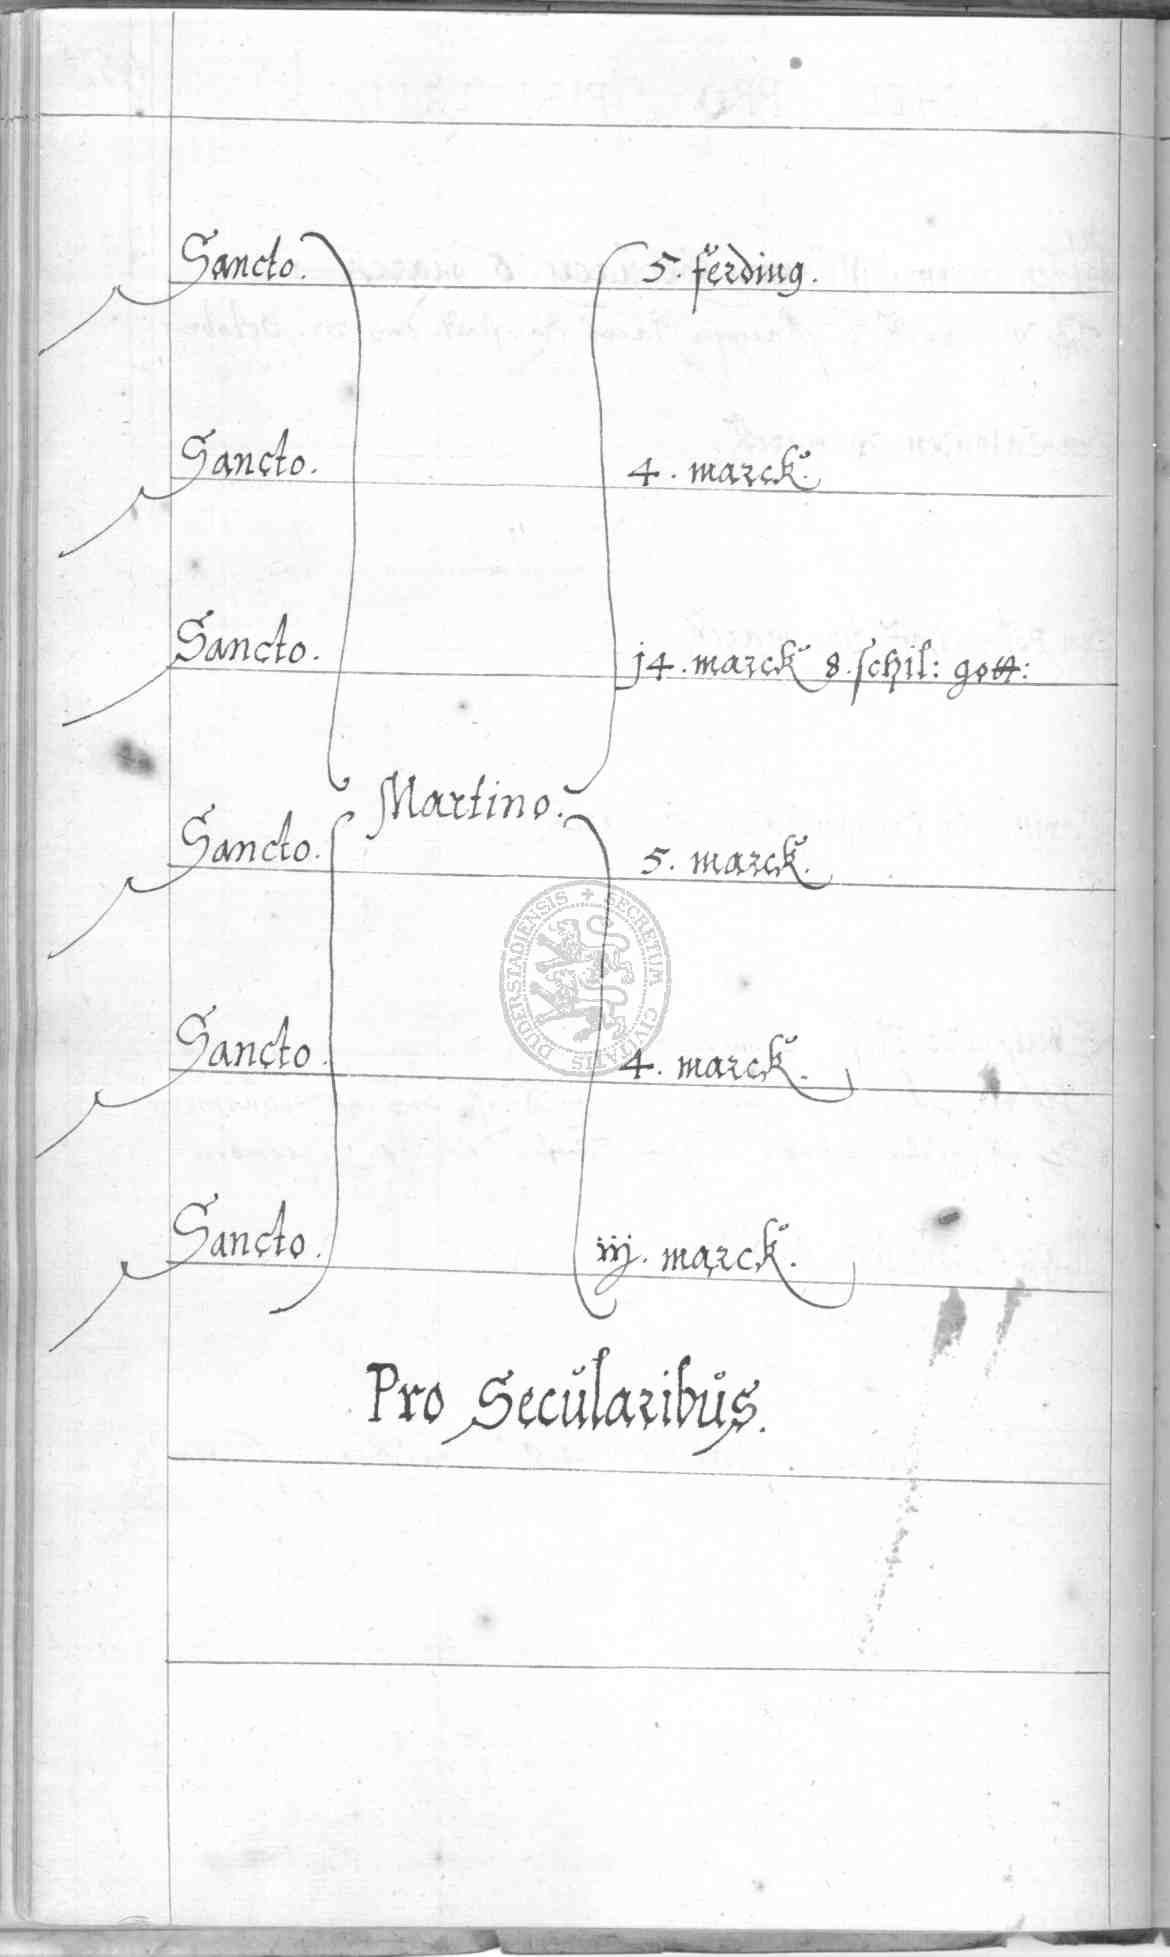 Sancto. 5. ferding.
Sancto. 4. marck.
Sancto. j4. marck 8. schil: gott:
Martino.
Sancto. 5. marck.
Sancto. 4. marck.
Sancto. iij. marck.
Pro Secularibus.
DUDERSTADIENSIS + SECRETUM CIVITATIS